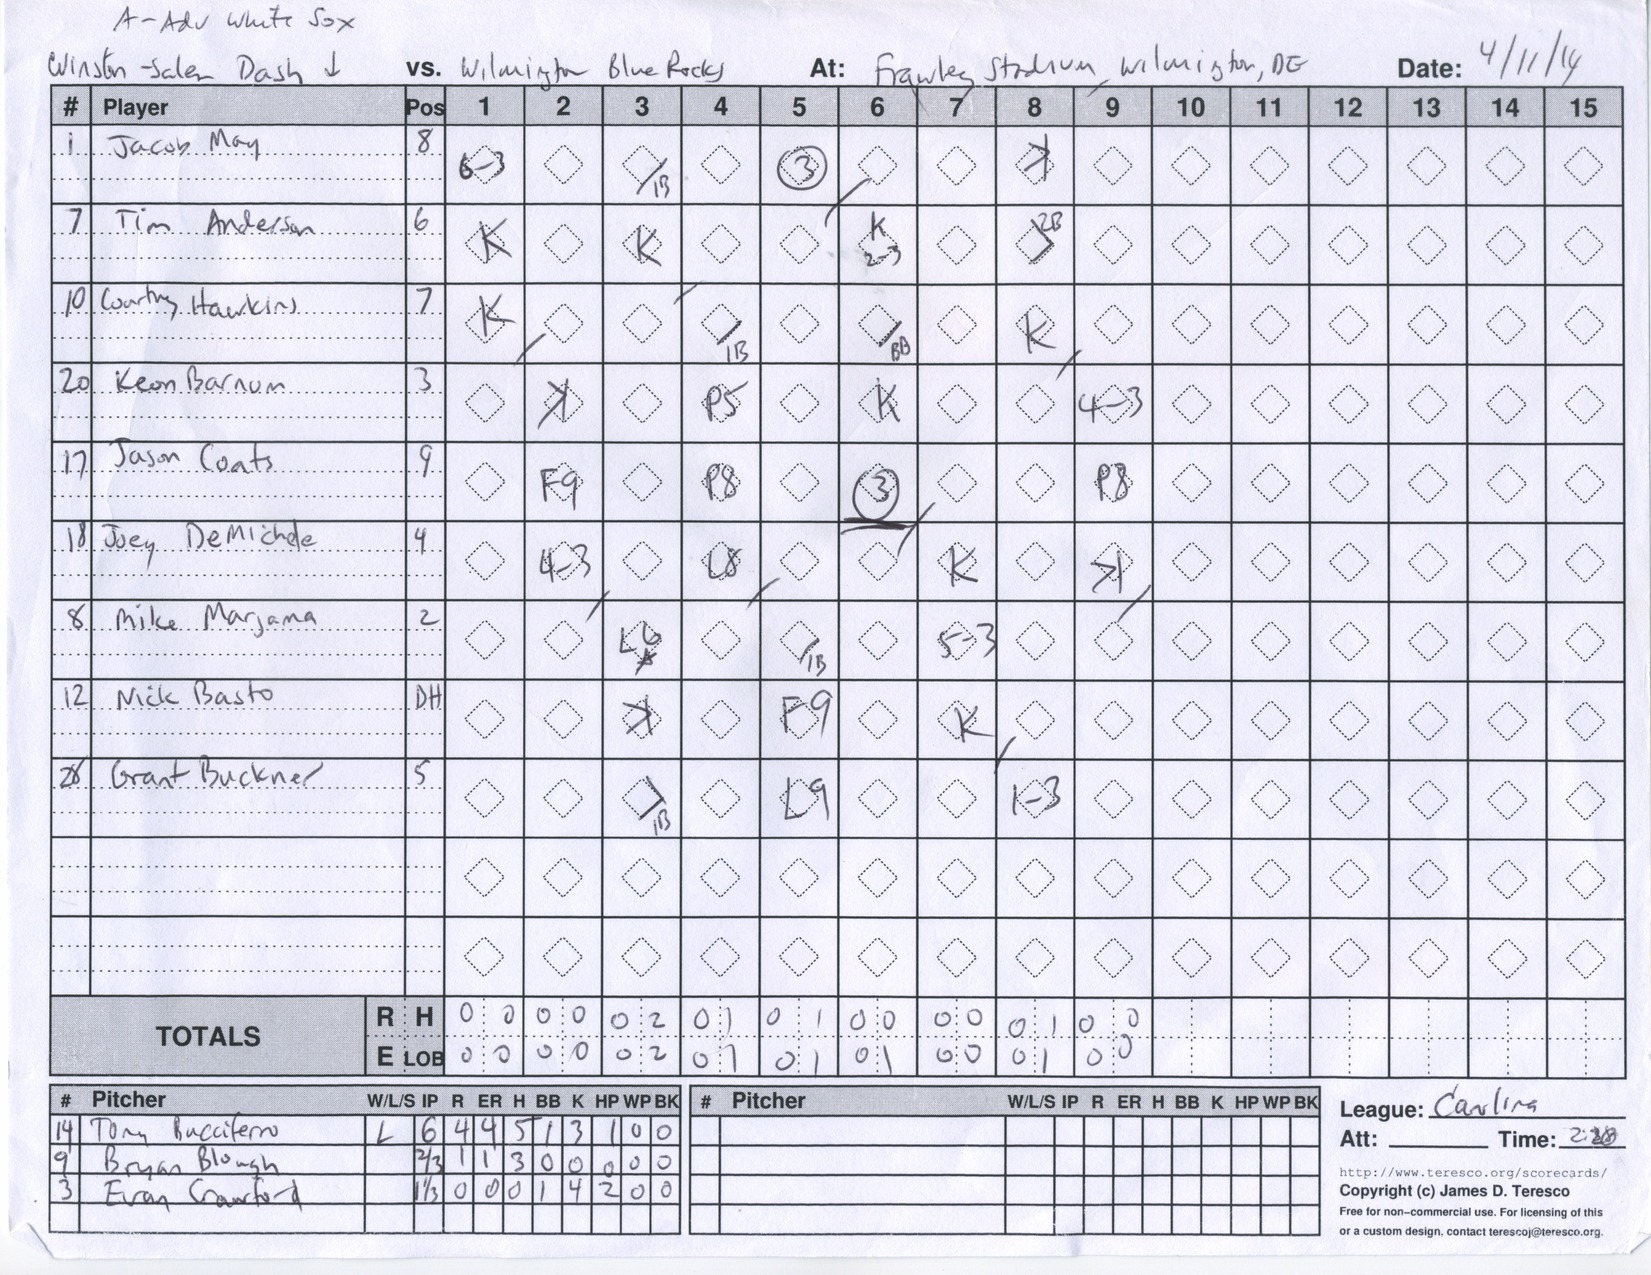 A-Adv White Sox
Winston-Salem Dash ↓ vs. Wilmington Blue Rocks At: Frawley Stadium, Wilmington, DE Date: 4/11/14
# Player Pos 1 2 3 4 5 6 7 8 9 10 11 12 13 14 15
1 Jacob May 8 6-3 1B 3 ꓘ
7 Tim Anderson 6 K K K 2-3 2B
10 Courtney Hawkins 7 K 1B BB K
20 Keon Barnum 3 ꓘ P5 K 4-3
17 Jason Coats 9 F9 P8 3 P8
18 Joey DeMichele 4 4-3 L8 K ꓘ
8 Mike Marjama 2 L6 * 1B 5-3
12 Nick Basto DH ꓘ F9 K
Grant Buckner 5 1B L9 1-3
TOTALS R H 0 0 0 0 0 2 0 1 0 1 0 0 0 0 0 1 0 0
E LOB 0 0 0 0 0 2 0 1 0 1 0 1 0 0 0 1 0 0
# Pitcher W/L/S IP R ER H BB K HP WP BK # Pitcher W/L/S IP R ER H BB K HP WP BK
14 Tony Bucciferro L 6 4 4 5 1 3 1 0 0
9 Bryan Blough 2/3 1 1 3 0 0 0 0 0
3 Evan Crawford 1 1/3 0 0 0 1 4 2 0 0
League: Carolina
Att: Time:
http://www.teresco.org/scorecards/
Copyright (c) James D. Teresco
Free for non-commercial use. For licensing of this
or a custom design, contact terescoj@teresco.org.